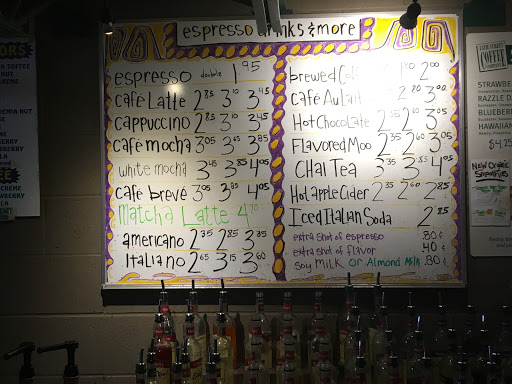 espresso drinks & more
espresso double 1.95
café Latte 2.85 3.10 3.45
cappuccino 2.85 3.10 3.45
café mocha 3.05 3.65 3.85
white mocha 3.45 3.85 4.05
café brevé 3.05 3.85 4.05
Matcha Latte 4.70
americano 2.35 2.85 3.35
Italiano 2.65 3.15 3.60
brewed 2.00
Café Au Lait
Hot Chocolate 2.15 2.35
Flavored Moo 2.35 2.60 3.05
Chai Tea 3.35 3.85 4.05
Hot apple Cider 2.35 2.60 2.85
Iced Italian Soda 2.85
extra shot of espresso .80¢
extra shot of flavor .40¢
soy Milk or Almond Milk .80¢
COFFEE
STRAWBE
RAZZLE DA
BLUEBER
HAWAIIA
$4.25
New Organic
Smoothies